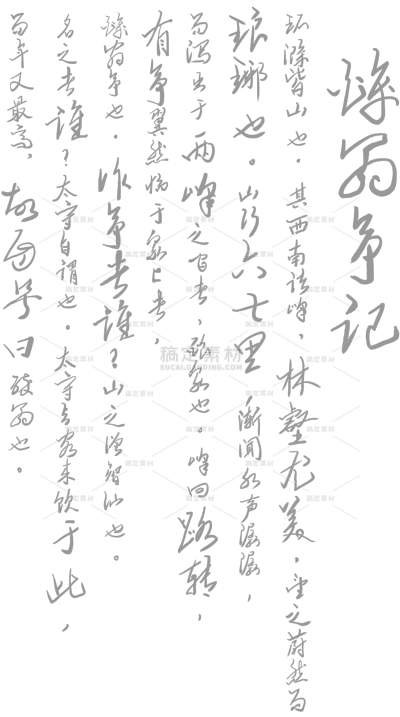 醉翁亭记
环滁皆山也。其西南诸峰，林壑尤美，望之蔚然而
琅琊也。山行六七里，渐闻水声潺潺，
而泻出于两峰之间者，酿泉也。峰回路转，
有亭翼然临于泉上者，
醉翁亭也。作亭者谁？山之僧智仙也。
名之者谁？太守自谓也。太守与客来饮于此，
而年又最高，故自号曰醉翁也。
稿定素材
SUCAI.GAODING.COM